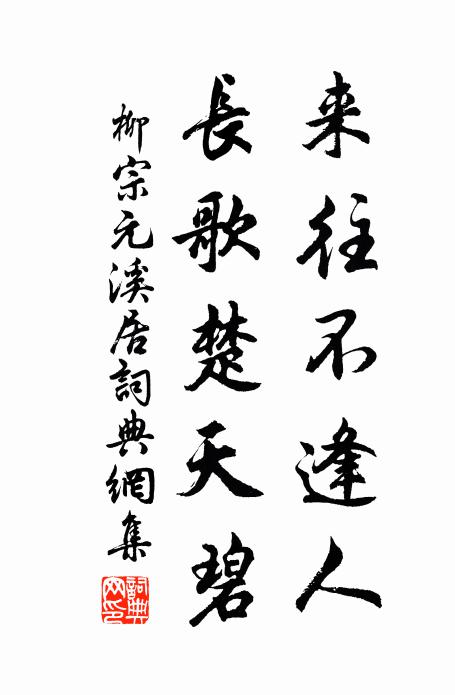 来往不逢人
長歌楚天碧
柳宗元溪居詞典網集
詞典
网印